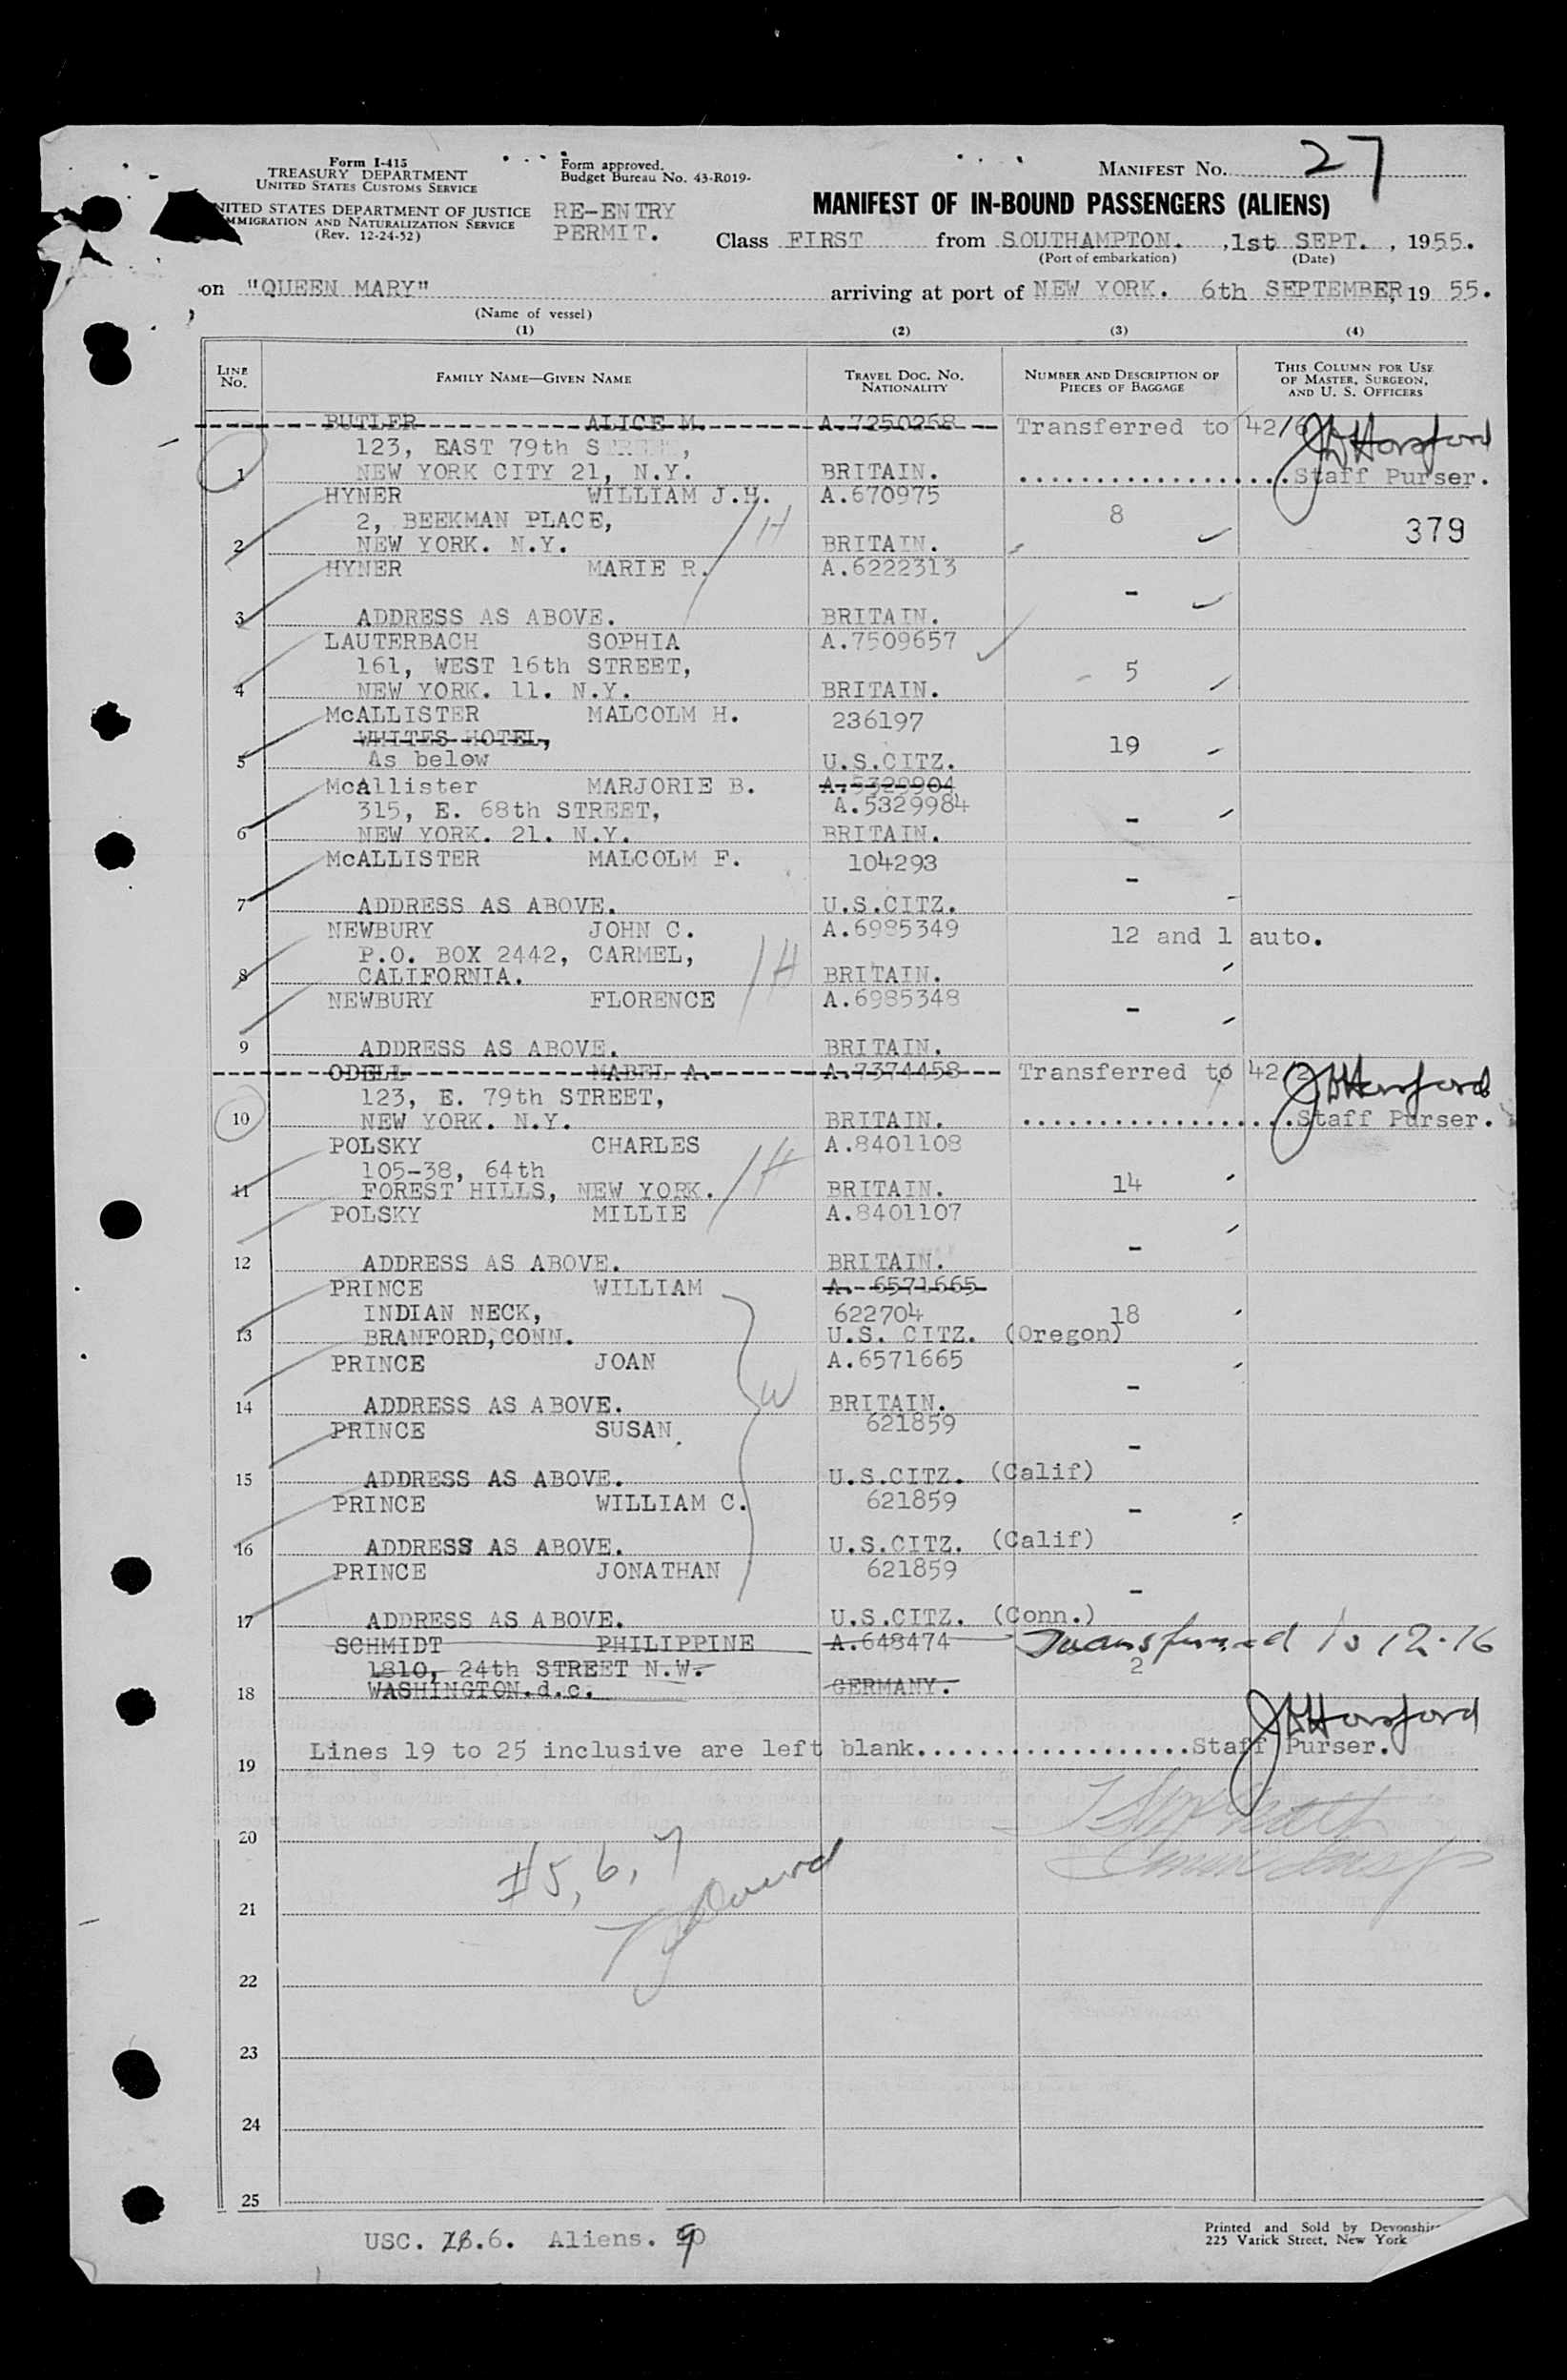 Form I-415
TREASURY DEPARTMENT
UNITED STATES CUSTOMS SERVICE
NITED STATES DEPARTMENT OF JUSTICE
MMIGRATION AND NATURALIZATION SERVICE
(Rev. 12-24-52)
Form approved.
Budget Bureau No. 43-R019-
RE-ENTRY
PERMIT.
MANIFEST NO. 27
MANIFEST OF IN-BOUND PASSENGERS (ALIENS)
Class FIRST from SOUTHAMPTON. , 1st SEPT. , 1955.
(Port of embarkation) (Date)
on "QUEEN MARY" arriving at port of NEW YORK. 6th SEPTEMBER, 19 55.
(Name of vessel)
(1) (2) (3) (4)
LINE No. FAMILY NAME—GIVEN NAME TRAVEL DOC. NO. NATIONALITY NUMBER AND DESCRIPTION OF PIECES OF BAGGAGE THIS COLUMN FOR USE OF MASTER, SURGEON, AND U. S. OFFICERS
BUTLER ALICE M. A.7250268 Transferred to 42/6 J Horsford
123, EAST 79th STREET,
1 NEW YORK CITY 21, N.Y. BRITAIN. ..................Staff Purser.
HYNER WILLIAM J.H. A.670975
2, BEEKMAN PLACE, H 8 379
2 NEW YORK. N.Y. BRITAIN.
HYNER MARIE R. A.6222313
-
3 ADDRESS AS ABOVE. BRITAIN.
LAUTERBACH SOPHIA A.7509657
161, WEST 16th STREET, 5
4 NEW YORK. 11. N.Y. BRITAIN.
McALLISTER MALCOLM H. 236197
WHITES HOTEL, 19
5 As below U.S.CITZ.
McAllister MARJORIE B. A.5329904
315, E. 68th STREET, A.5329984 -
6 NEW YORK. 21. N.Y. BRITAIN.
McALLISTER MALCOLM F. 104293
-
7 ADDRESS AS ABOVE. U.S.CITZ.
NEWBURY JOHN C. A.6985349 12 and 1 auto.
P.O. BOX 2442, CARMEL, H
8 CALIFORNIA. BRITAIN.
NEWBURY FLORENCE A.6985348 -
9 ADDRESS AS ABOVE. BRITAIN.
ODELL MABEL A. A.7374458 Transferred to 42/2 J Horsford
123, E. 79th STREET,
10 NEW YORK. N.Y. BRITAIN. ..................Staff Purser.
POLSKY CHARLES A.8401108
105-38, 64th H
11 FOREST HILLS, NEW YORK. BRITAIN. 14
POLSKY MILLIE A.8401107
-
12 ADDRESS AS ABOVE. BRITAIN.
PRINCE WILLIAM A. 6571665
INDIAN NECK, 622704 18
13 BRANFORD, CONN. U.S. CITZ. (Oregon)
PRINCE JOAN A.6571665
W -
14 ADDRESS AS ABOVE. BRITAIN.
PRINCE SUSAN 621859
-
15 ADDRESS AS ABOVE. U.S.CITZ. (Calif)
PRINCE WILLIAM C. 621859 -
16 ADDRESS AS ABOVE. U.S.CITZ. (Calif)
PRINCE JONATHAN 621859
-
17 ADDRESS AS ABOVE. U.S.CITZ. (Conn.)
SCHMIDT PHILIPPINE A.648474 Transferred to 12.16
1810, 24th STREET N.W. 2
18 WASHINGTON.d.c. GERMANY.
J Horsford
Lines 19 to 25 inclusive are left blank..................Staff Purser.
19
20
#5, 6, 7
21
22
23
24
25
USC. 6. Aliens. 9
Printed and Sold by Devonshire
225 Varick Street, New York